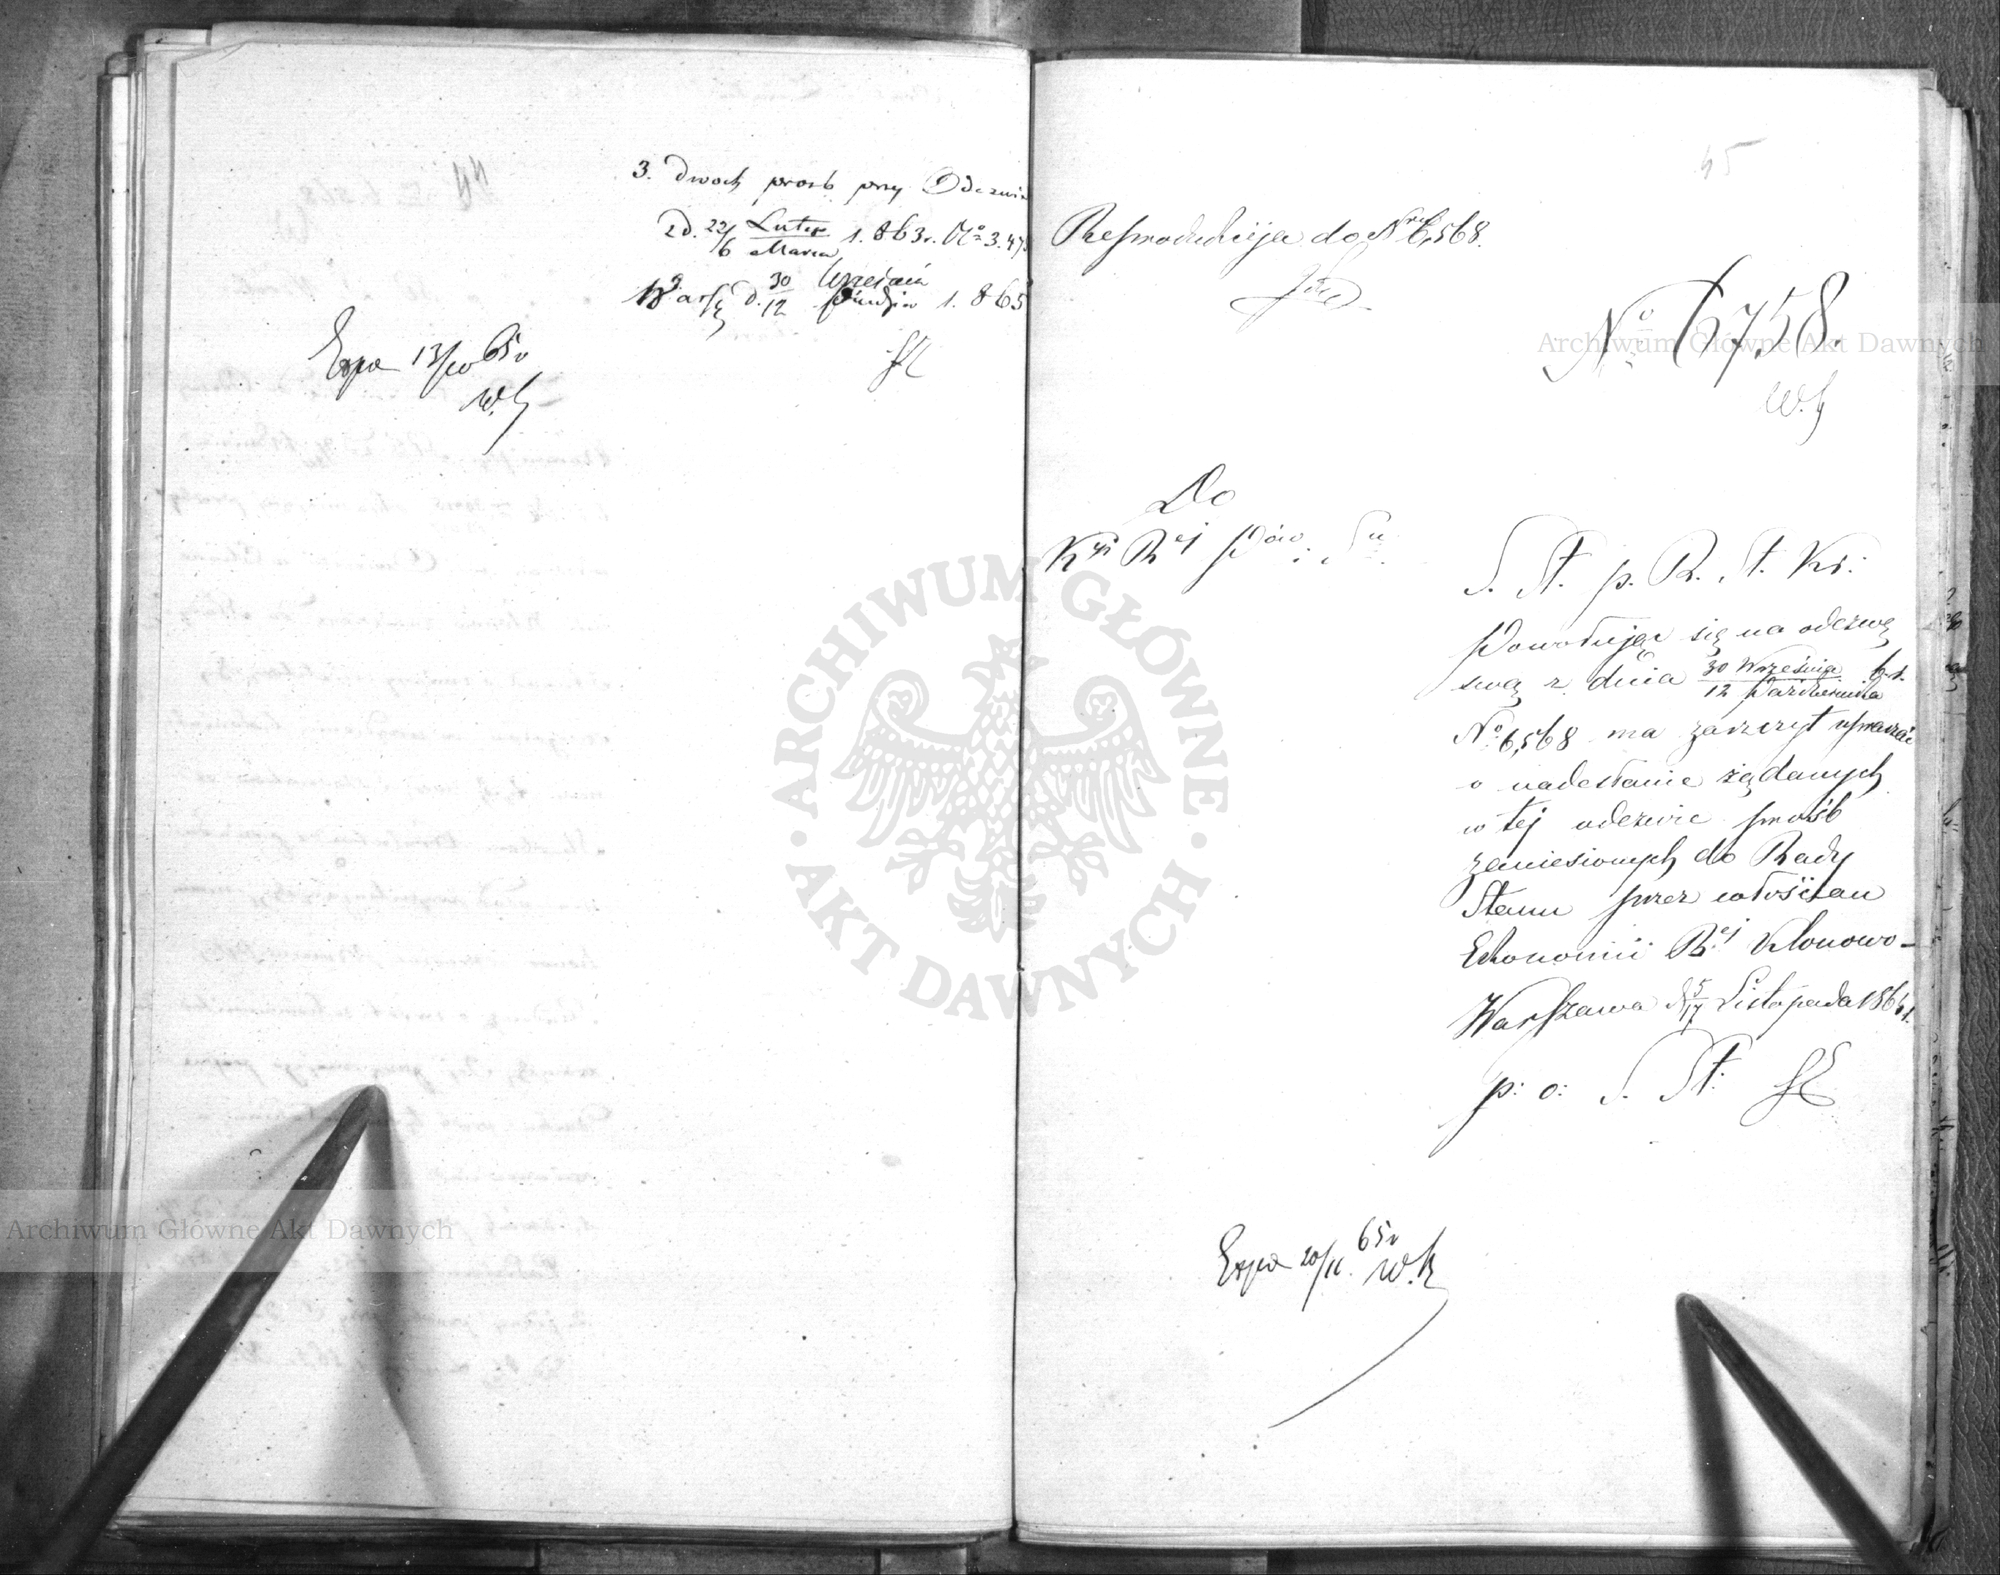 3. dwoch prosb przy Odezwie
z d. 22/6 Lutego/Marca 1.863 r. No 3.47
Warsz d. 30/12 Wrześnià/Paźdzìer 1.865
Expe 13/10 65 r
W.K.
45
Reprodukcyja do Nru 6,568.
No 6758.
W.K.
Do
Kyi Rej
S. St. p. R. St. Kr:
Powołując się na odezwę
swą z dnia 30 Września/12 Października b.r.
No 6,568 ma zaszczyt upraszać
o nadesłanie żądanych
w tej odezwie prośb
zaniesionych do Rady
Stanu przez włościan
Ekonomii Rej Klonowo-
Warszawa d 5/17 Listopada 1865 r.
p: o: S. St:
Expe 20/11. 65 r
W.K.
ARCHIWUM GŁÓWNE · AKT DAWNYCH ·
Archiwum Główne Akt Dawnych
Archiwum Główne Akt Dawnych